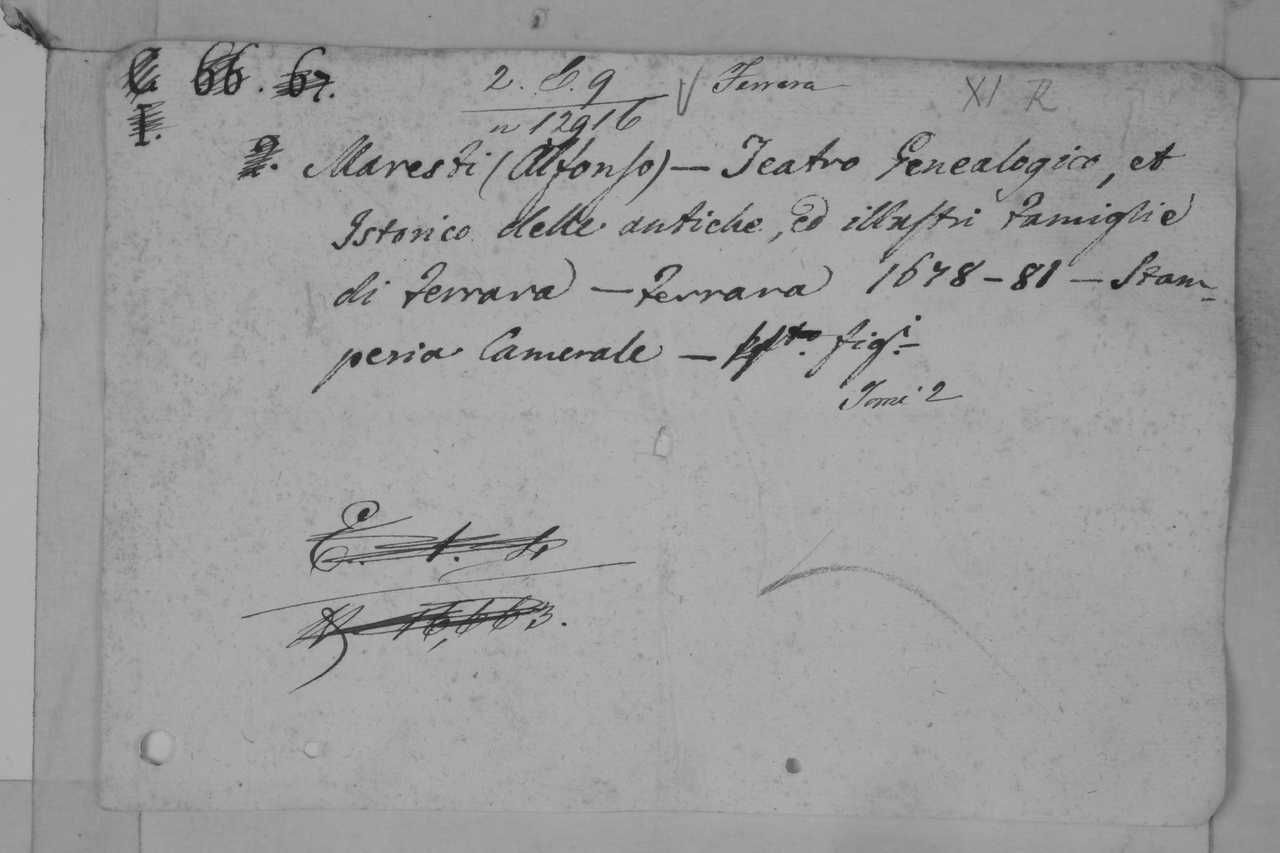 C. 66. 67.
2. E. 9 Ferrara XI R
I.
n 12916
2. Maresti (Alfonso) — Teatro Genealogico, et
Istorico delle antiche, ed illustri famiglie
di Ferrara — Ferrara 1678-81 — Stam-
peria Camerale — figi.
Tomi 2
E. 1. 4
N. 16,663.